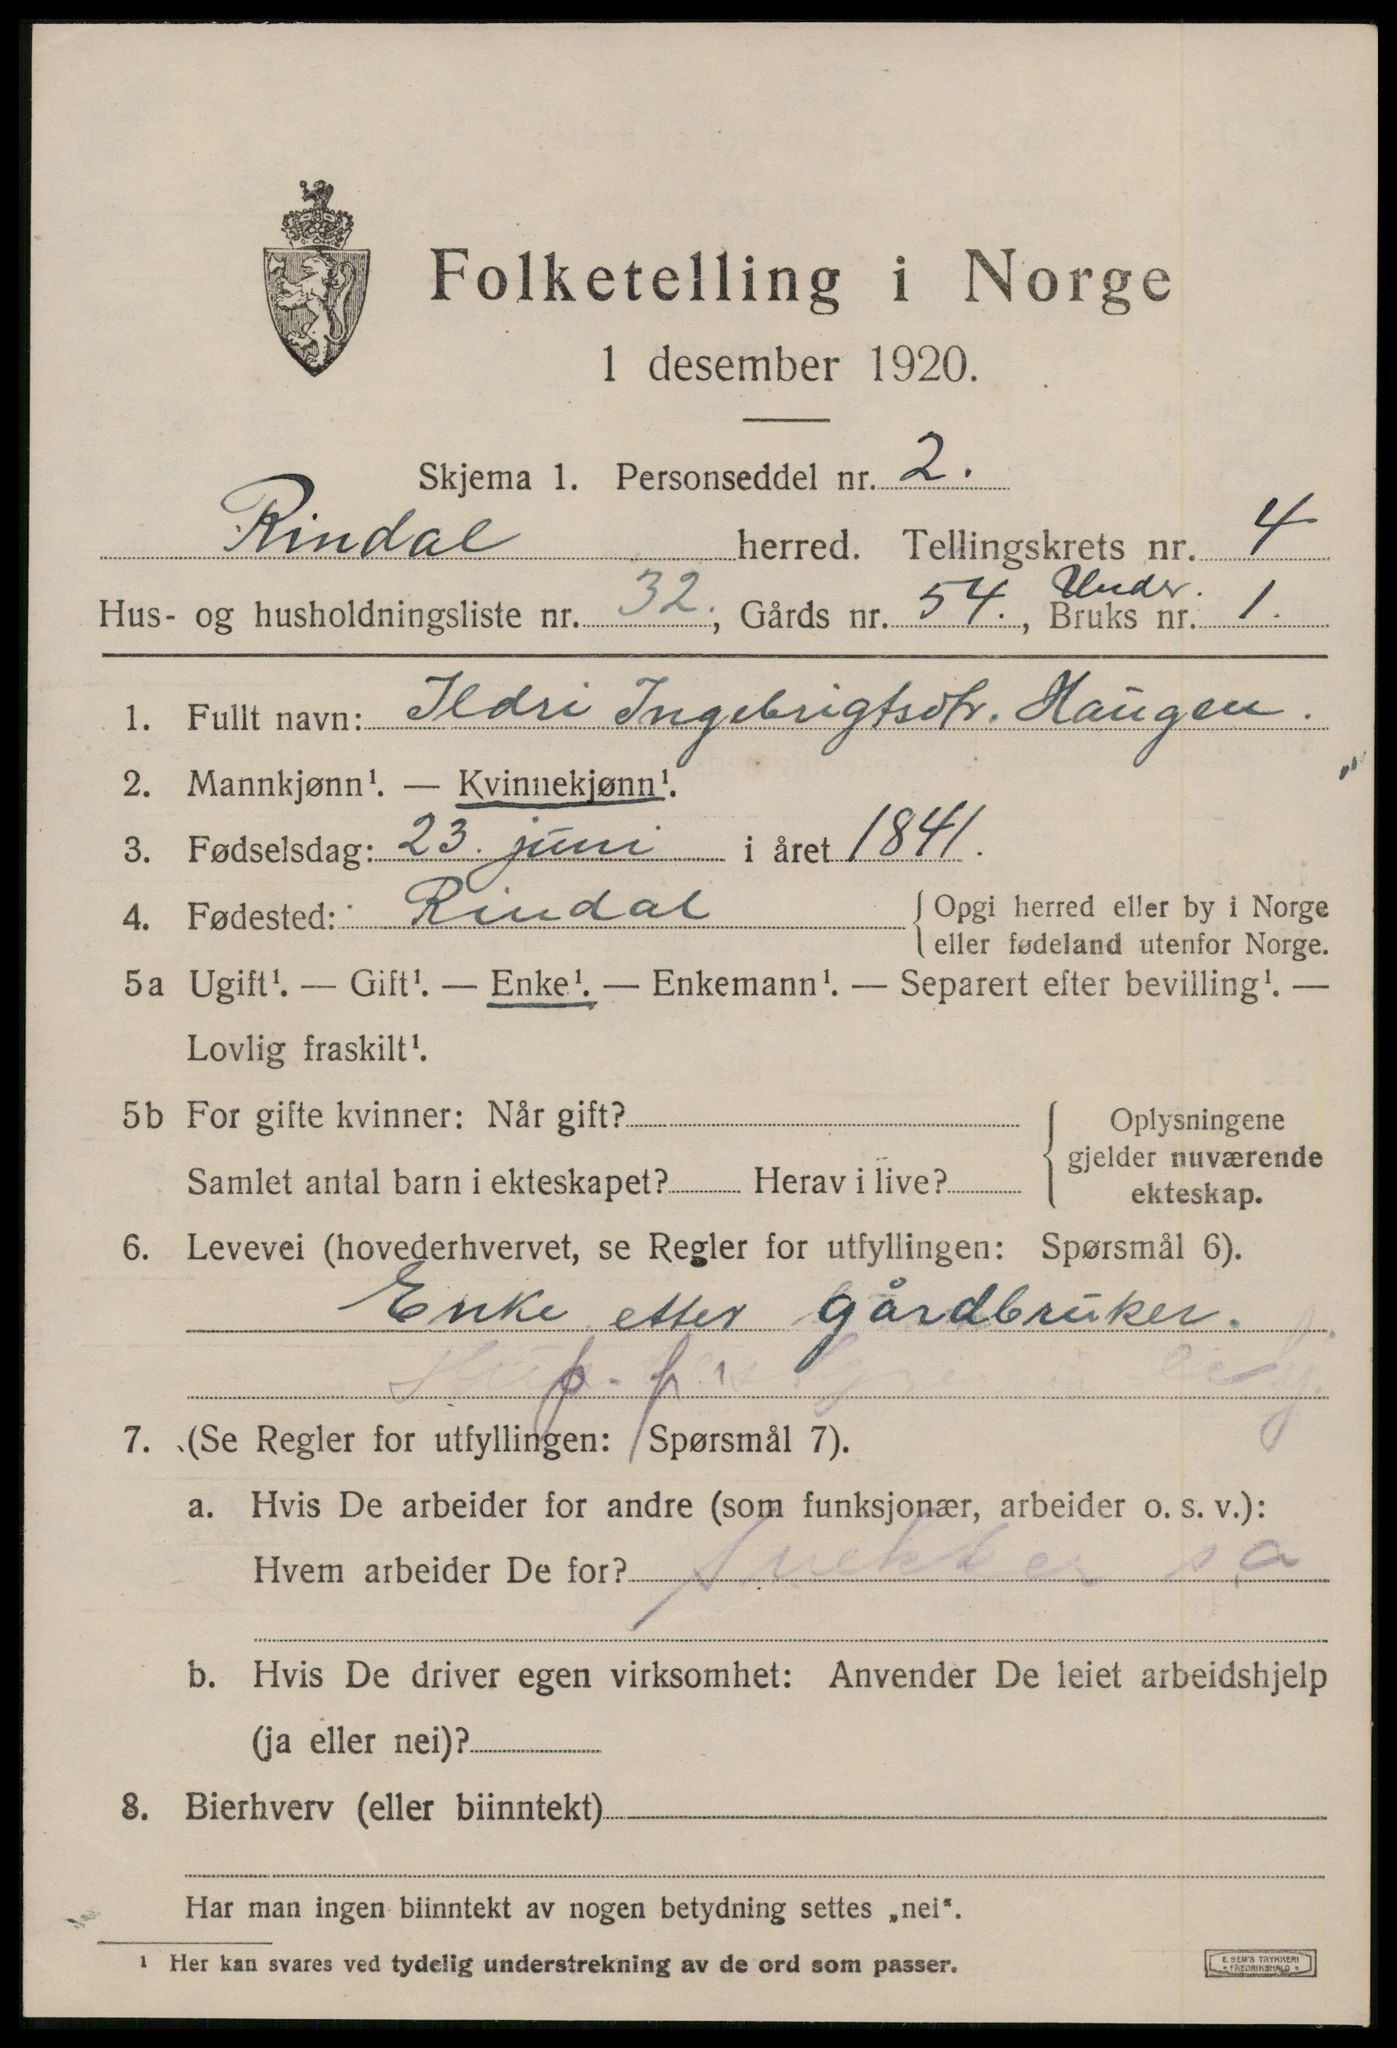 Folketelling i Norge
1 desember 1920.
Skjema 1. Personseddel nr. 2.
Rindal herred. Tellingskrets nr. 4
Under.
Hus- og husholdningsliste nr. 32., Gårds nr. 54., Bruks nr. 1.
1. Fullt navn: Ildri Ingebrigtsdtr. Haugen.
2. Mannkjønn¹. — Kvinnekjønn¹.
3. Fødselsdag: 23. juni i året 1841.
4. Fødested: Rindal { Opgi herred eller by i Norge
eller fødeland utenfor Norge.
5a Ugift¹. — Gift¹. — Enke¹. — Enkemann¹. — Separert efter bevilling¹. —
Lovlig fraskilt¹.
5b For gifte kvinner: Når gift?
Samlet antal barn i ekteskapet? Herav i live?
{ Oplysningene
gjelder nuværende
ekteskap.
6. Levevei (hovederhvervet, se Regler for utfyllingen: Spørsmål 6).
Enke etter gårdbruker.
7. (Se Regler for utfyllingen: Spørsmål 7).
a. Hvis De arbeider for andre (som funksjonær, arbeider o. s. v.):
Hvem arbeider De for? Snekker s a
b. Hvis De driver egen virksomhet: Anvender De leiet arbeidshjelp
(ja eller nei)?
8. Bierhverv (eller biinntekt)
Har man ingen biinntekt av nogen betydning settes „nei“.
¹ Her kan svares ved tydelig understrekning av de ord som passer.
E. SEM'S TRYKKERI
FREDRIKSHALD